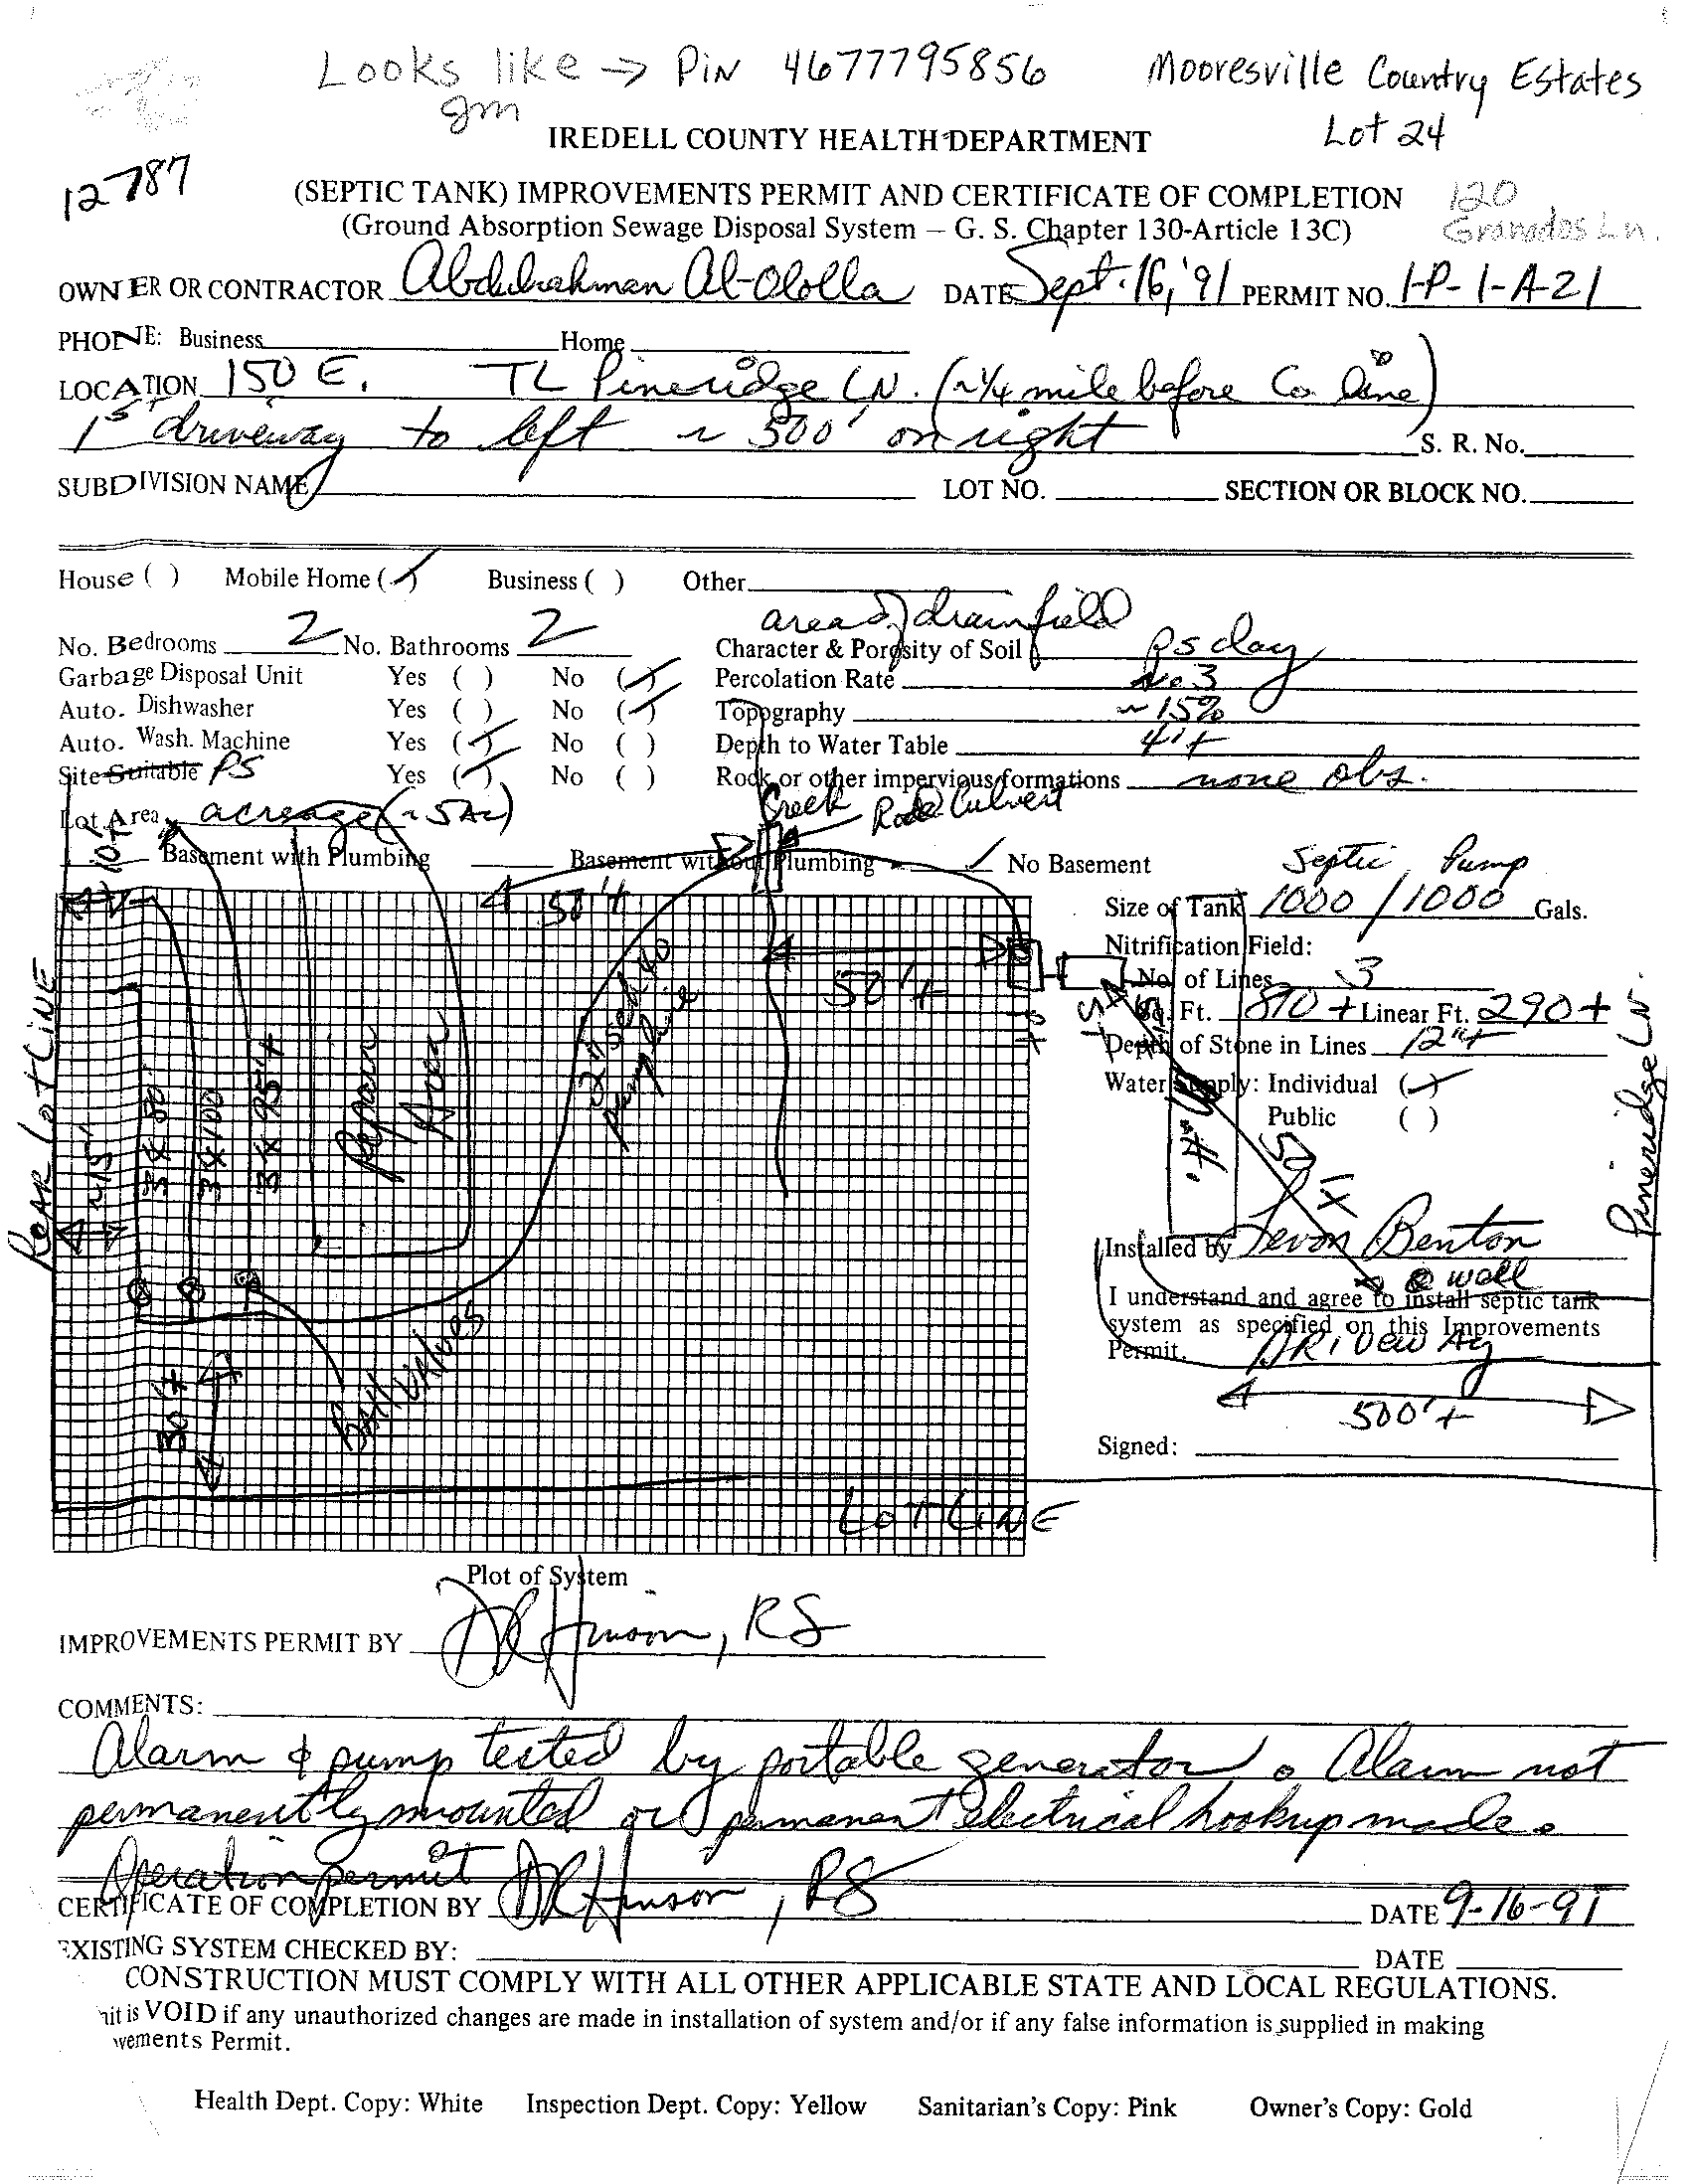 Looks like → PIN 4677795856 Mooresville Country Estates
gm Lot 24
IREDELL COUNTY HEALTH DEPARTMENT
12787
(SEPTIC TANK) IMPROVEMENTS PERMIT AND CERTIFICATE OF COMPLETION 120
(Ground Absorption Sewage Disposal System – G. S. Chapter 130-Article 13C) Granados Ln.
OWNER OR CONTRACTOR Abdulrahman Al-Ololla DATE Sept. 16, '91 PERMIT NO. I-P-1-A-21
PHONE: Business Home
LOCATION 150 E. TL Pineridge LN. (~1/4 mile before Co line)
1st driveway to left ~ 500' on right S. R. No.
SUBDIVISION NAME LOT NO. SECTION OR BLOCK NO.
House ( ) Mobile Home (✓) Business ( ) Other
area of drainfield
No. Bedrooms 2 No. Bathrooms 2 Character & Porosity of Soil PS clay
Garbage Disposal Unit Yes ( ) No (✓) Percolation Rate No. 3
Auto. Dishwasher Yes ( ) No (✓) Topography ~15%
Auto. Wash. Machine Yes (✓) No ( ) Depth to Water Table 4'+
Site Suitable PS Yes (✓) No ( ) Rock or other impervious formations none obs.
Lot Area acreage (~5Ac) Creek Culvert
10'+
Basement with Plumbing Basement without Plumbing ✓ No Basement Septic Pump
50'+ Size of Tank 1000 / 1000 Gals.
Nitrification Field:
50'+ No. of Lines 3
Sq. Ft. 870 + Linear Ft. 290 +
Depth of Stone in Lines 12"+
Water Supply: Individual (✓)
Public ( )
REAR LOT LINE
~15'
3 x 100
3 x 95'+
Repair Area
2" sched 40
5'+
M.H.
50'+
Pineridge LN.
Installed by Levon Benton
well
I understand and agree to install septic tank
system as specified on this Improvements
Permit.
DRiveway
500'+
Ball valves
30'+
Signed:
LOT LINE
Plot of System
IMPROVEMENTS PERMIT BY DR Hinson, RS
COMMENTS:
Alarm & pump tested by portable generator. Alarm not
permanently mounted or permanent electrical hookup made.
Operation permit
CERTIFICATE OF COMPLETION BY DR Hinson, RS DATE 9-16-91
EXISTING SYSTEM CHECKED BY: DATE
CONSTRUCTION MUST COMPLY WITH ALL OTHER APPLICABLE STATE AND LOCAL REGULATIONS.
is VOID if any unauthorized changes are made in installation of system and/or if any false information is supplied in making
vements Permit.
Health Dept. Copy: White Inspection Dept. Copy: Yellow Sanitarian's Copy: Pink Owner's Copy: Gold